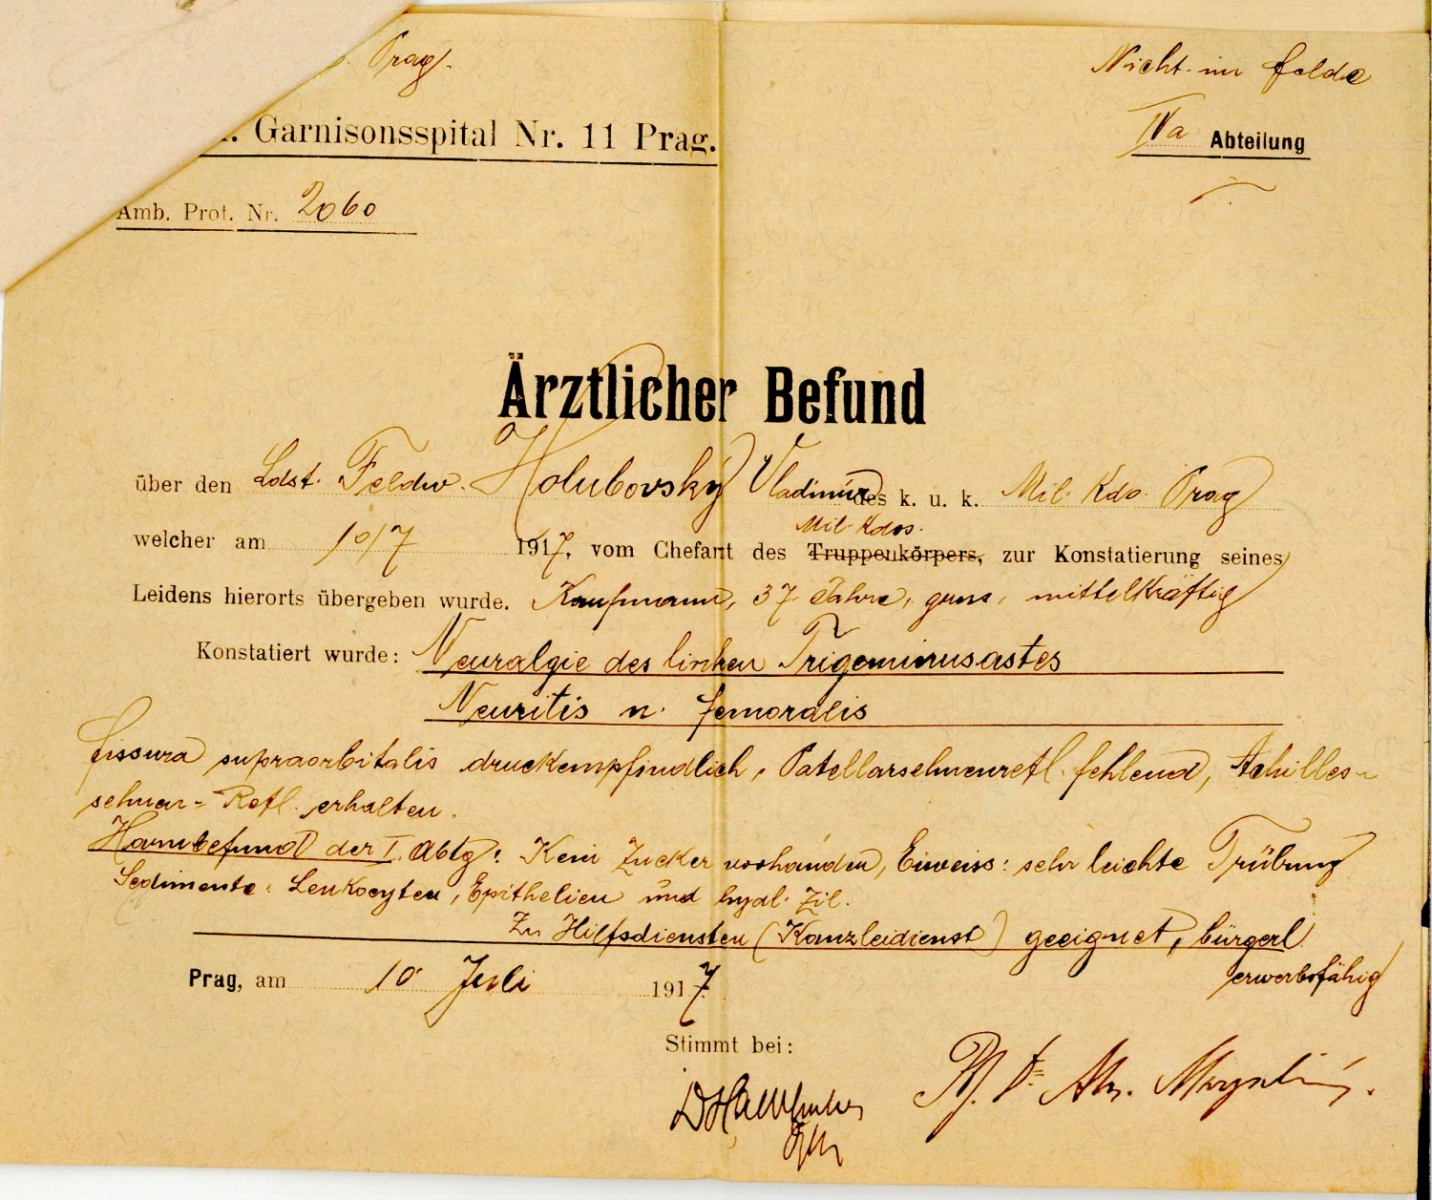 Prag.
Nicht im Felde
Garnisonsspital Nr. 11 Prag.
IVa Abteilung
Amb. Prot. Nr. 2060
Ärztlicher Befund
über den Ldst. Feldw. Holubovský Vladimír des k. u. k. Mil. Kdo. Prag
Mil. Kdos.
welcher am 10/7 1917, vom Chefarzt des Truppenkörpers, zur Konstatierung seines
Leidens hierorts übergeben wurde. Kaufmann, 37 Jahre, gross, mittelkräftig
Konstatiert wurde: Neuralgie des linken Trigeminusastes
Neuritis n. femoralis
fissura supraorbitalis druckempfindlich, Patellarsehnenrefl. fehlend, Achilles-
sehnen-Refl. erhalten.
Harnbefund der I. Abtg: Kein Zucker vorhanden, Eiweiss: sehr leichte Trübung
Sedimente: Leukocyten, Epithelien und hyal. Zil.
Zu Hilfsdiensten (Kanzleidienst) geeignet, bürgerl.
erwerbsfähig
Prag, am 10 Juli 1917
Stimmt bei: